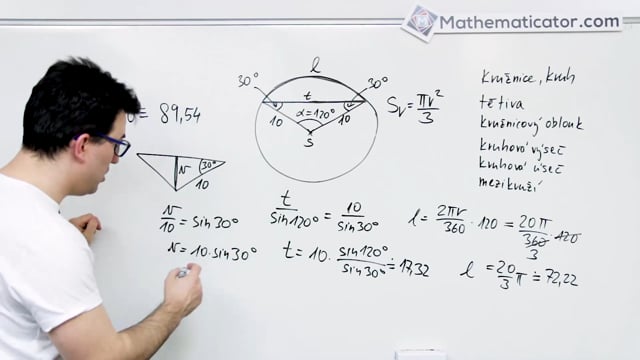 Mathematicator.com
l
30° 30°
t
α=120°
10 10
S
= 89,54
S_V = πr²/3
kružnice, kruh
tětiva
kružnicový oblouk
kruhová výseč
kruhová úseč
mezikruží
v 30°
10
v/10 = sin30°
v = 10.sin30°
t/sin120° = 10/sin30°
t = 10. sin120°/sin30° ≐ 17,32
l = 2πr/360 . 120 = 20π/360 . 120
3
l = 20/3 π ≐ 72,22